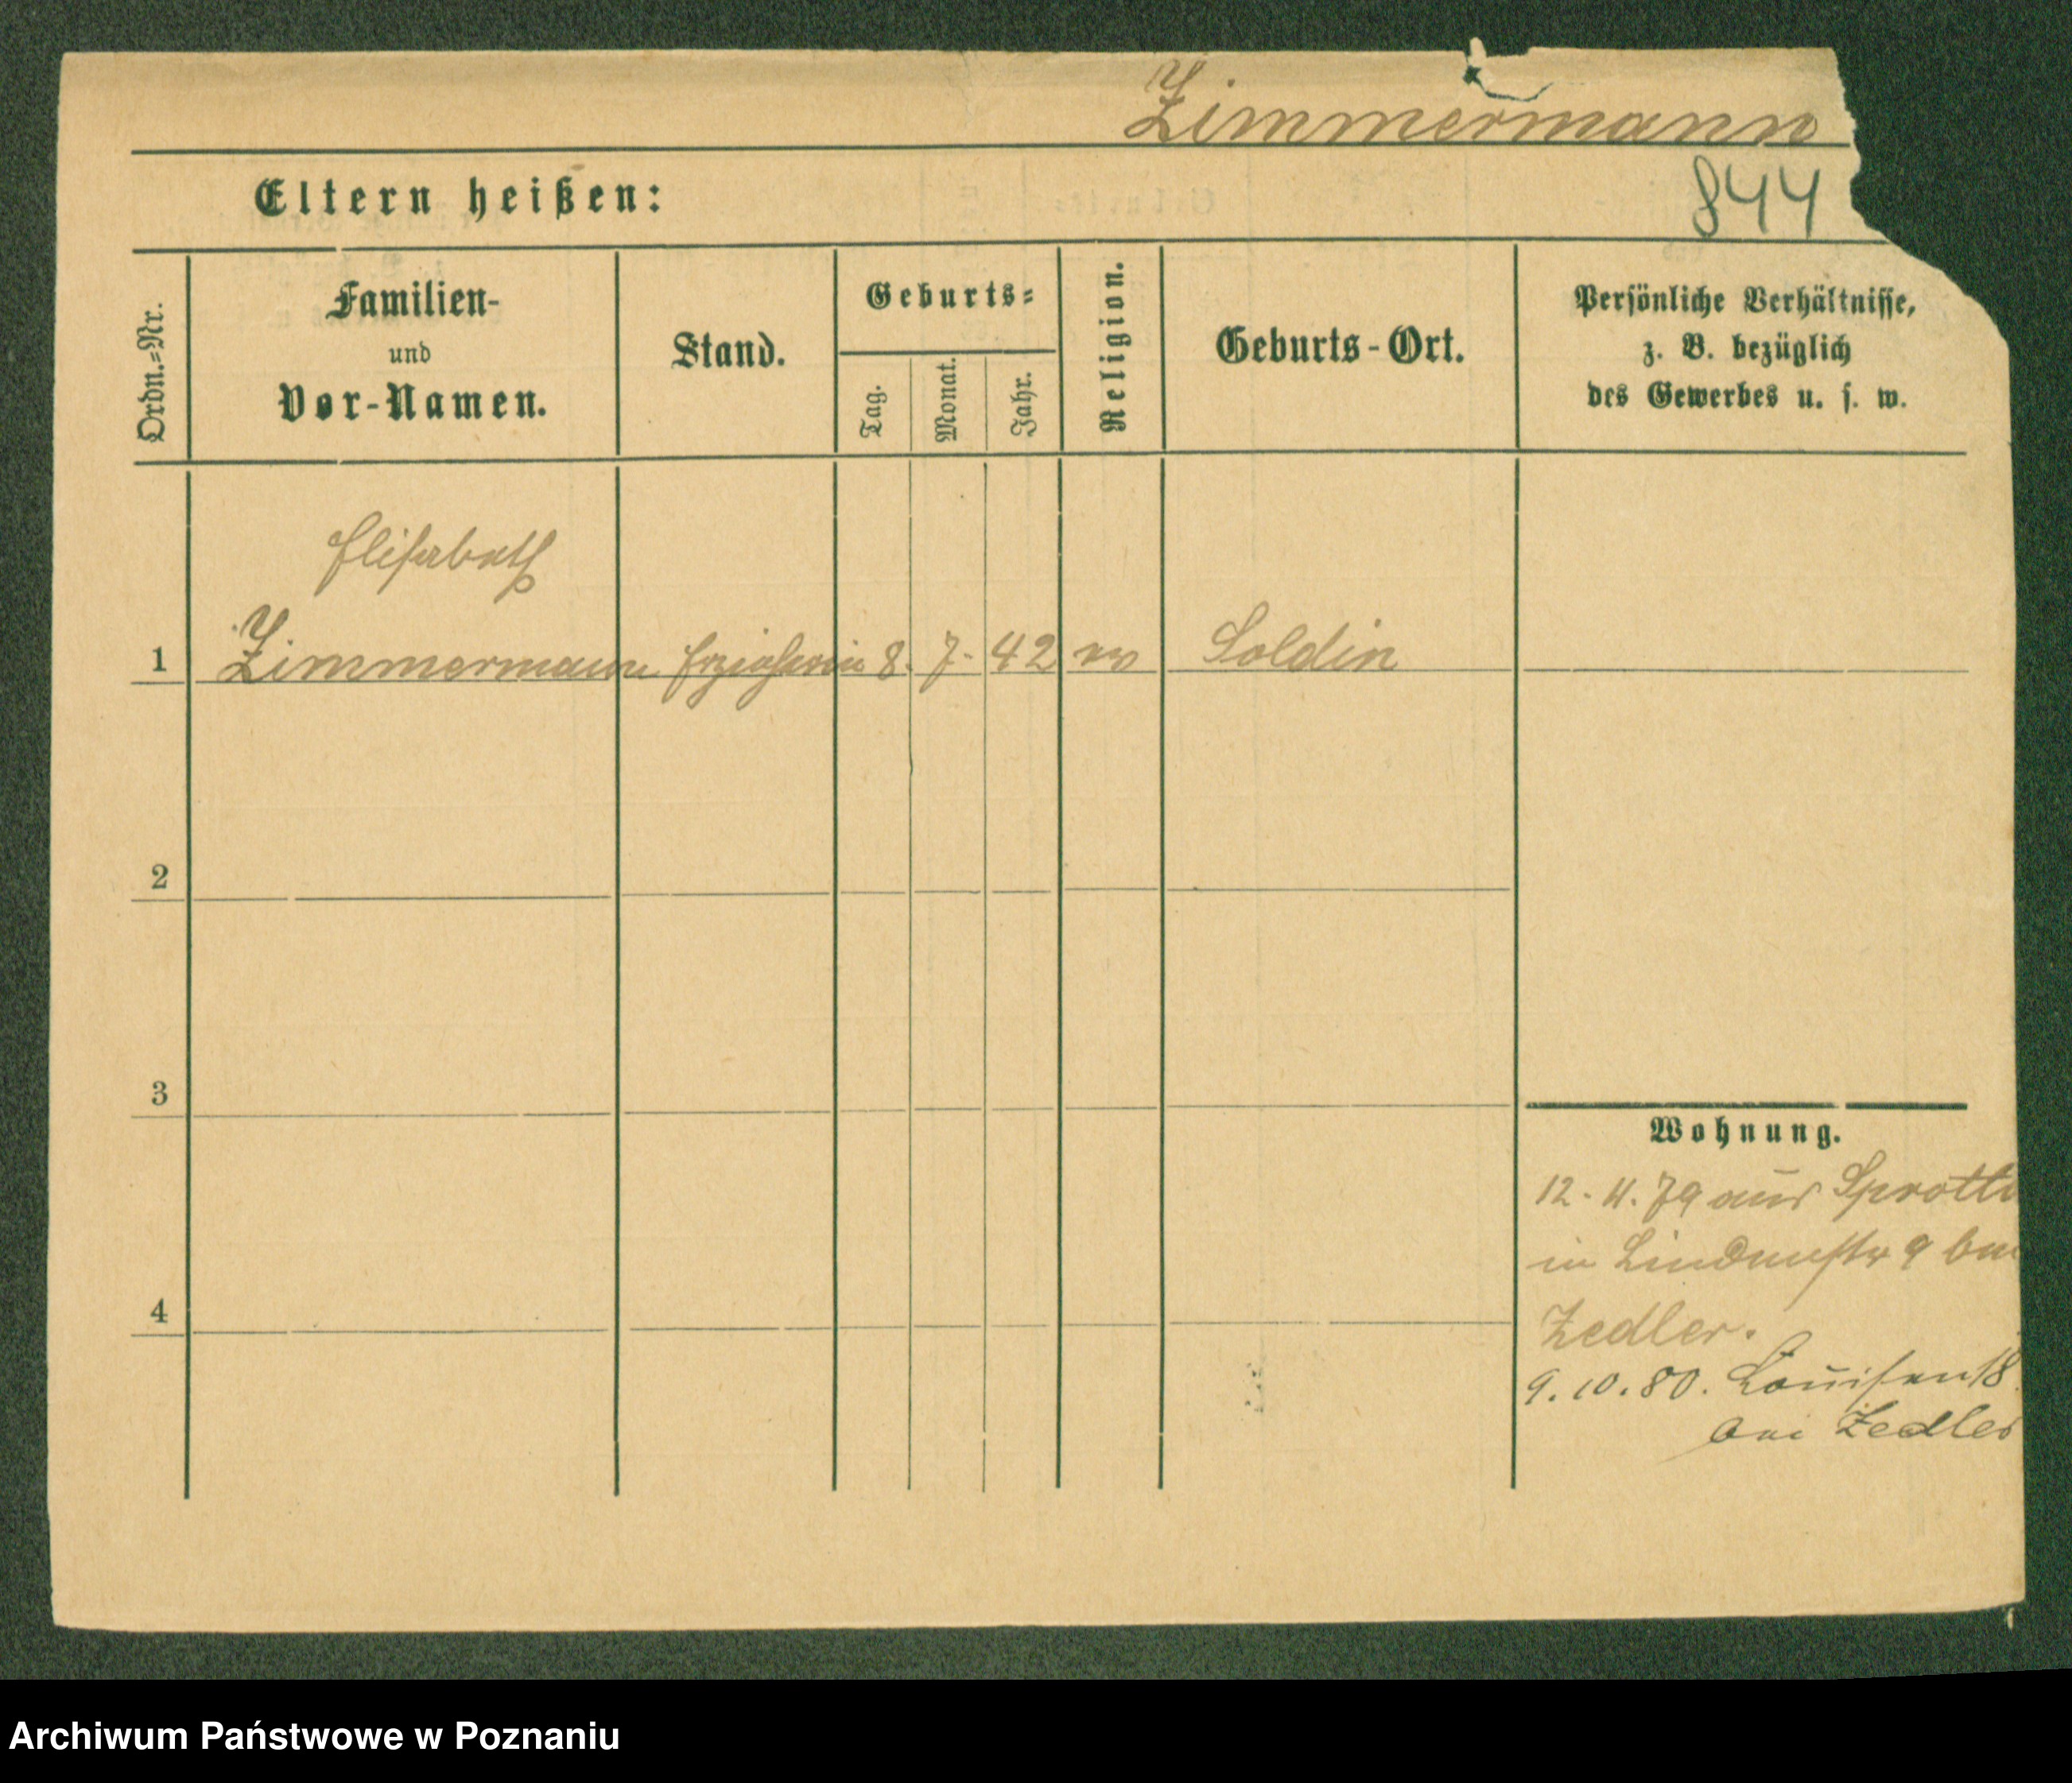 Zimmermann
844
Eltern heißen:
Ordn.=Nr.
Familien-
und
Vor-Namen.
Stand.
Geburts=
Tag.
Monat.
Jahr.
Religion.
Geburts-Ort.
Persönliche Verhältnisse,
z. B. bezüglich
des Gewerbes u. s. w.
Elisabeth
1 Zimmermann Erzieherin 8. 7. 42 ev Soldin
2
3
4
Wohnung.
12. 4. 79 aus Sprotta
in Lindenstr 9 bei
Zedler.
9. 10. 80. Louisen 18.
bei Zedler
Archiwum Państwowe w Poznaniu